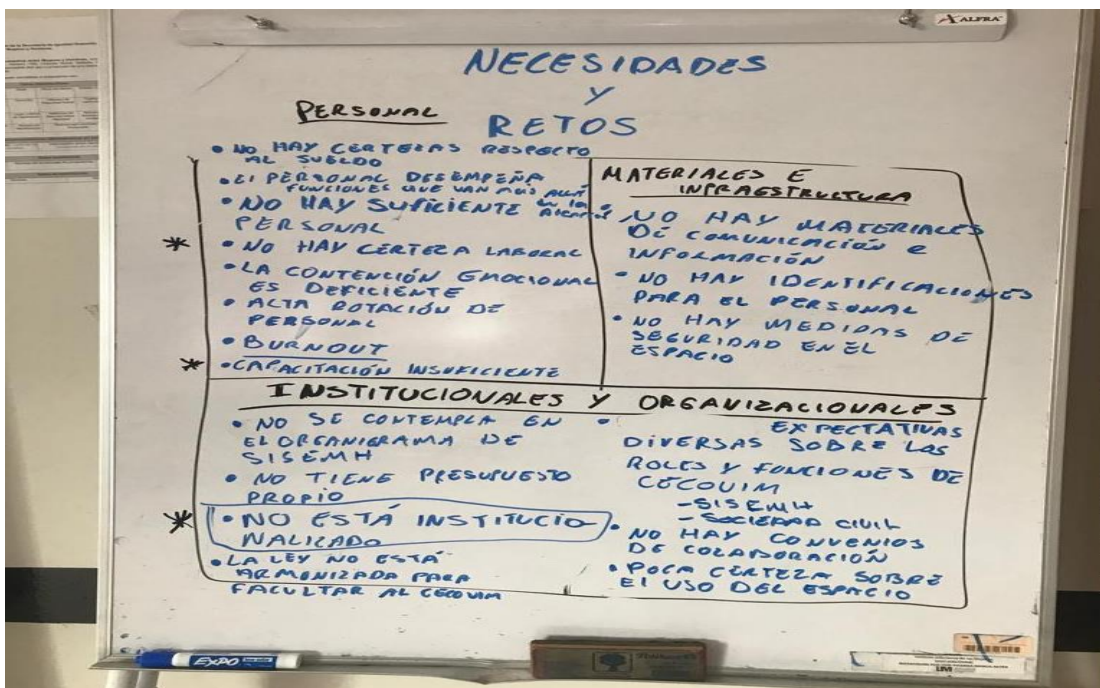 ALFRA
NECESIDADES
Y
RETOS
PERSONAL
• NO HAY CERTEZAS RESPECTO
AL SUELDO
• El PERSONAL DESEMPEÑA
FUNCIONES QUE VAN MÁS ALLÁ
• NO HAY SUFICIENTE
PERSONAL
* • NO HAY CERTEZA LABORAL
• LA CONTENCIÓN EMOCIONAL
ES DEFICIENTE
• ALTA ROTACIÓN DE
PERSONAL
• BURNOUT
* • CAPACITACIÓN INSUFICIENTE
MATERIALES E
INFRAESTRUCTURA
• NO HAY MATERIALES
DE COMUNICACIÓN e
INFORMACIÓN
• NO HAY IDENTIFICACIONES
PARA EL PERSONAL
• NO HAY MEDIDAS DE
SEGURIDAD EN EL
ESPACIO
INSTITUCIONALES Y ORGANIZACIONALES
• NO SE CONTEMPLA EN
EL ORGANIGRAMA DE
SISEMH
• NO TIENE PRESUPUESTO
PROPIO
* • NO ESTÁ INSTITUCIO-
NALIZADO
• LA LEY NO ESTÁ
ARMONIZADA PARA
FACULTAR AL CECOVIM
• EXPECTATIVAS
DIVERSAS SOBRE LOS
ROLES Y FUNCIONES DE
CECOVIM
- SISEMH
- SOCIEDAD CIVIL
• NO HAY CONVENIOS
DE COLABORACIÓN
• POCA CERTEZA SOBRE
El USO DEL ESPACIO
EXPO